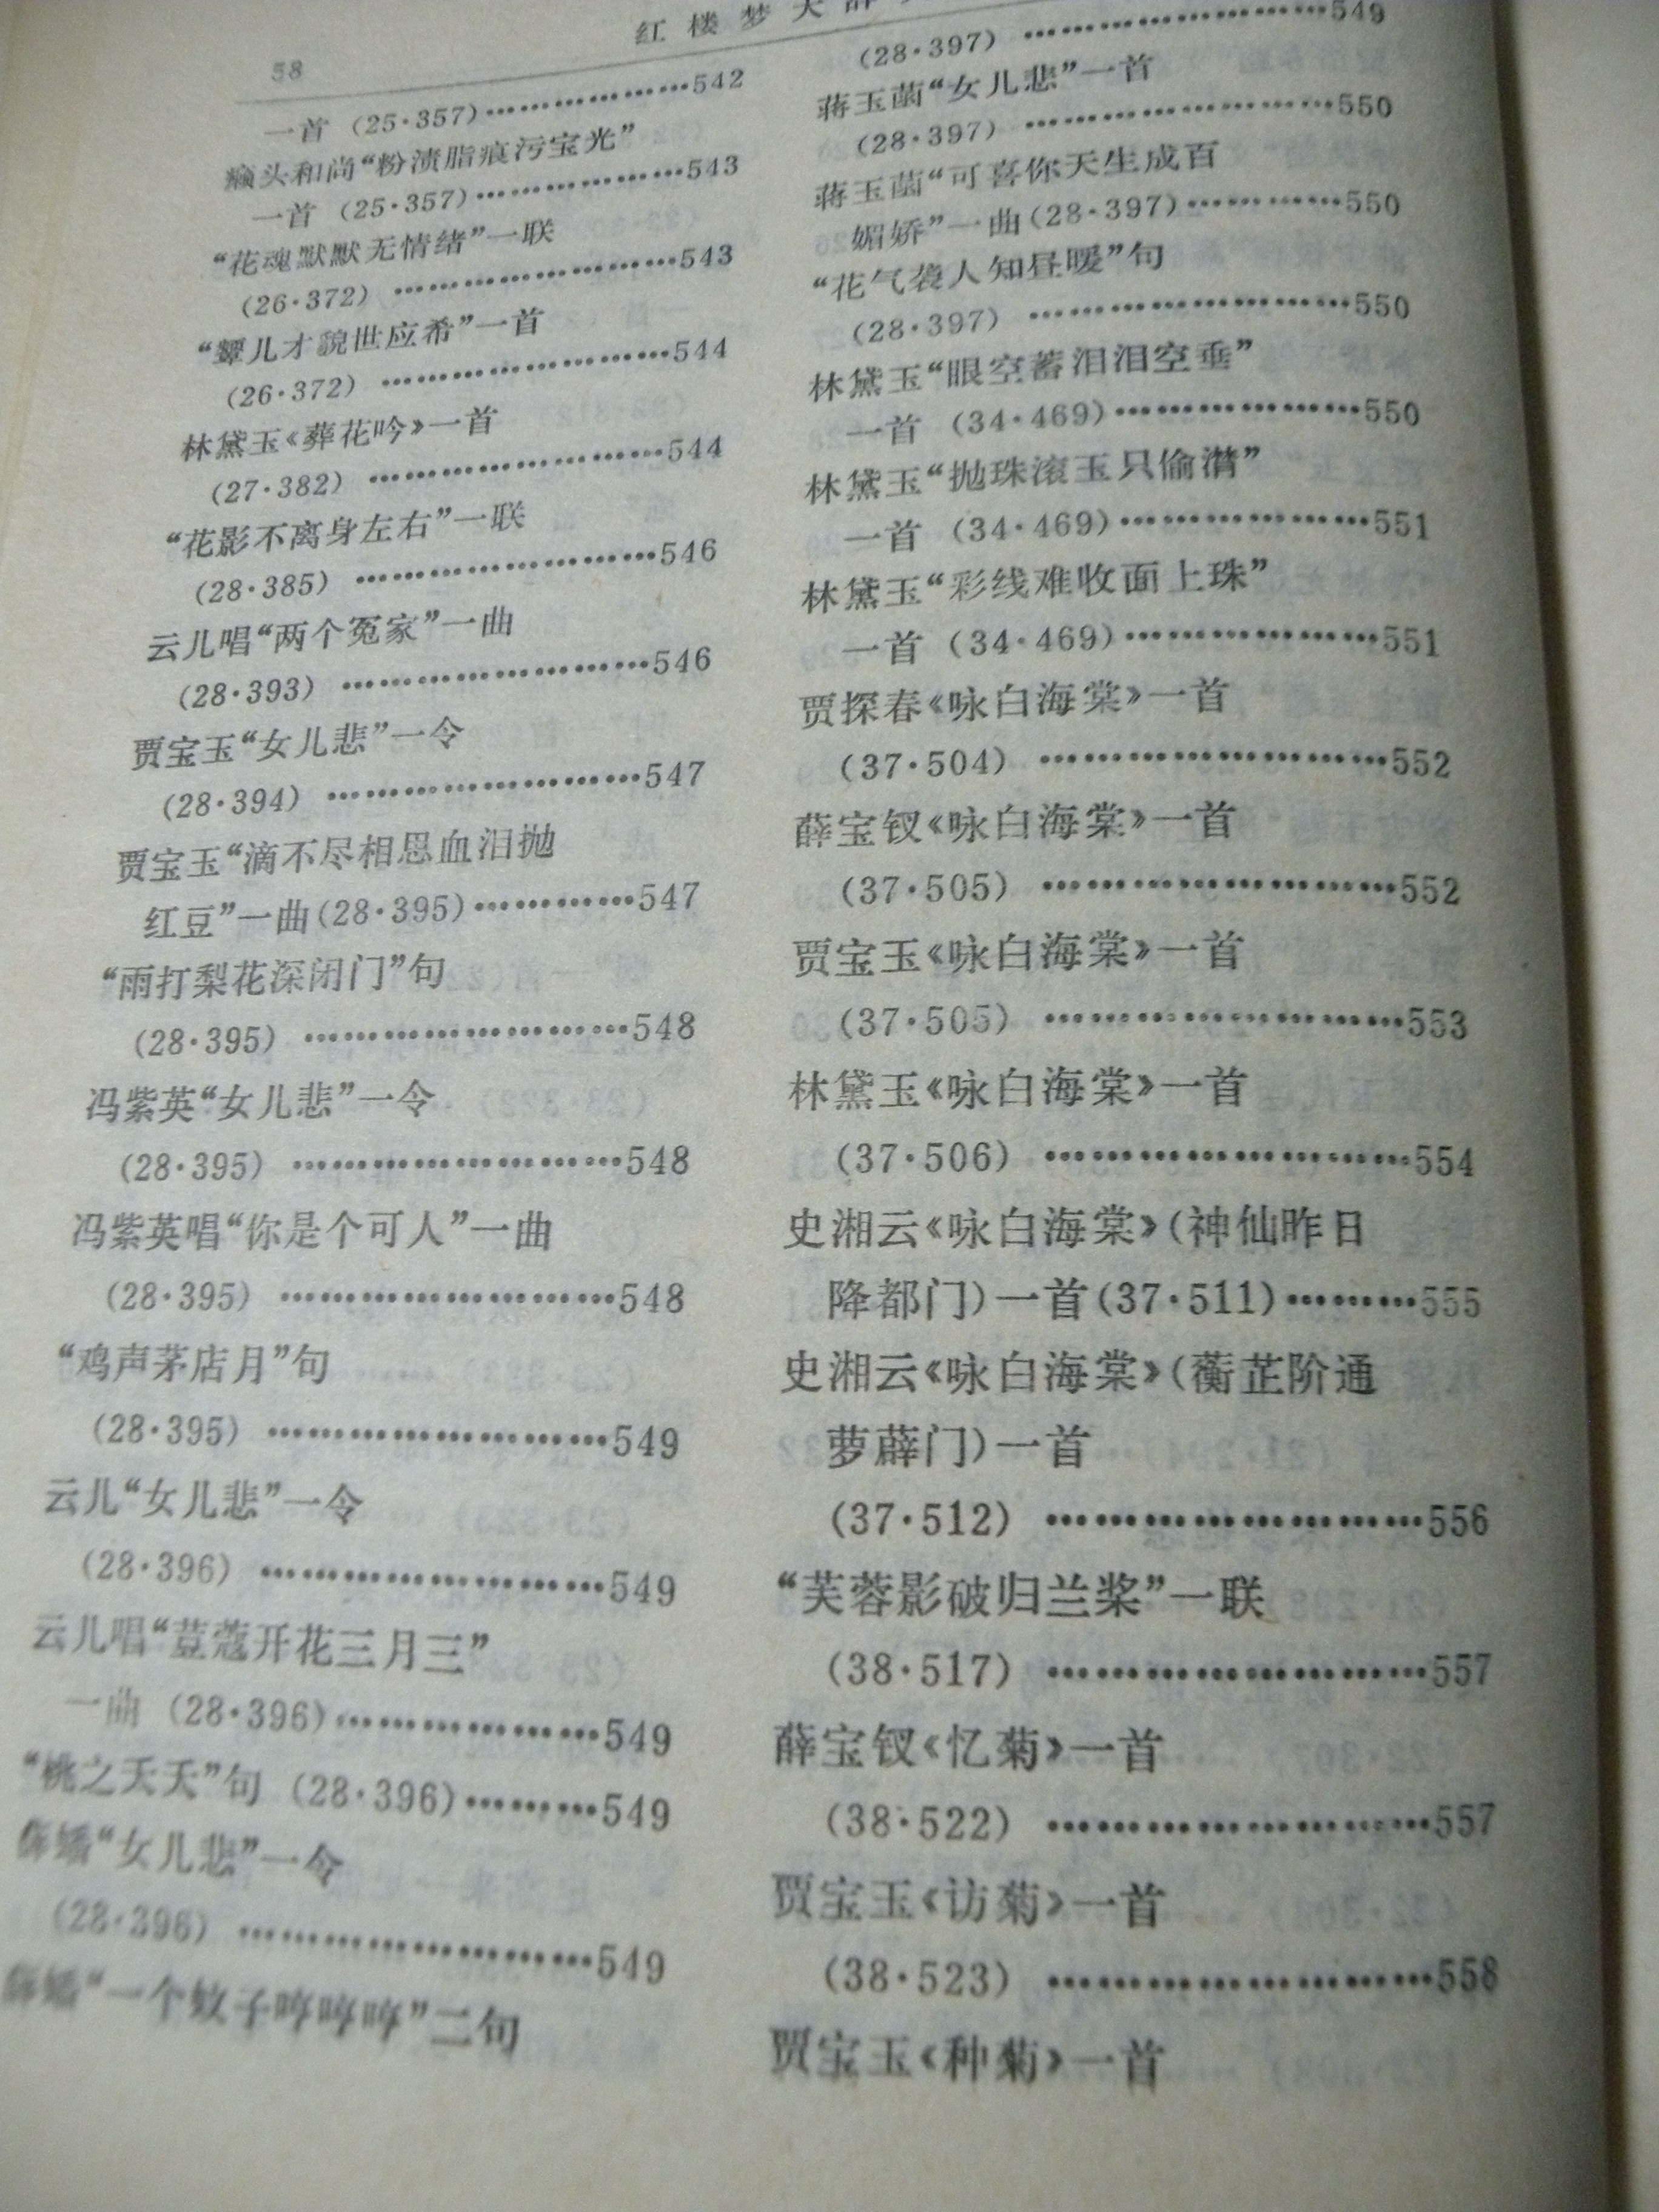 58
红楼梦大辞
一首 (25·357)………………542
癞头和尚“粉渍脂痕污宝光”
一首 (25·357)………………543
“花魂默默无情绪”一联
(26·372) ………………………543
“颦儿才貌世应希”一首
(26·372) ………………………544
林黛玉《葬花吟》一首
(27·382) ………………………544
“花影不离身左右”一联
(28·385) ………………………546
云儿唱“两个冤家”一曲
(28·393) ………………………546
贾宝玉“女儿悲”一令
(28·394) ………………………547
贾宝玉“滴不尽相思血泪抛
红豆”一曲(28·395)…………547
“雨打梨花深闭门”句
(28·395) ………………………548
冯紫英“女儿悲”一令
(28·395) ………………………548
冯紫英唱“你是个可人”一曲
(28·395) ………………………548
“鸡声茅店月”句
(28·395) ………………………549
云儿“女儿悲”一令
(28·396) ………………………549
云儿唱“荳蔻开花三月三”
一曲 (28·396)………………549
“桃之夭夭”句 (28·396)………549
薛蟠“女儿悲”一令
(28·396) ………………………549
薛蟠“一个蚊子哼哼哼”二句
(28·397) ………………………549
蒋玉菡“女儿悲”一首
(28·397) ………………………550
蒋玉菡“可喜你天生成百
媚娇”一曲(28·397)…………550
“花气袭人知昼暖”句
(28·397) ………………………550
林黛玉“眼空蓄泪泪空垂”
一首 (34·469)………………550
林黛玉“抛珠滚玉只偷潸”
一首 (34·469)………………551
林黛玉“彩线难收面上珠”
一首 (34·469)………………551
贾探春《咏白海棠》一首
(37·504) ………………………552
薛宝钗《咏白海棠》一首
(37·505) ………………………552
贾宝玉《咏白海棠》一首
(37·505) ………………………553
林黛玉《咏白海棠》一首
(37·506) ………………………554
史湘云《咏白海棠》(神仙昨日
降都门)一首(37·511)………555
史湘云《咏白海棠》(蘅芷阶通
萝薜门)一首
(37·512) ………………………556
“芙蓉影破归兰桨”一联
(38·517) ………………………557
薛宝钗《忆菊》一首
(38·522) ………………………557
贾宝玉《访菊》一首
(38·523) ………………………558
贾宝玉《种菊》一首